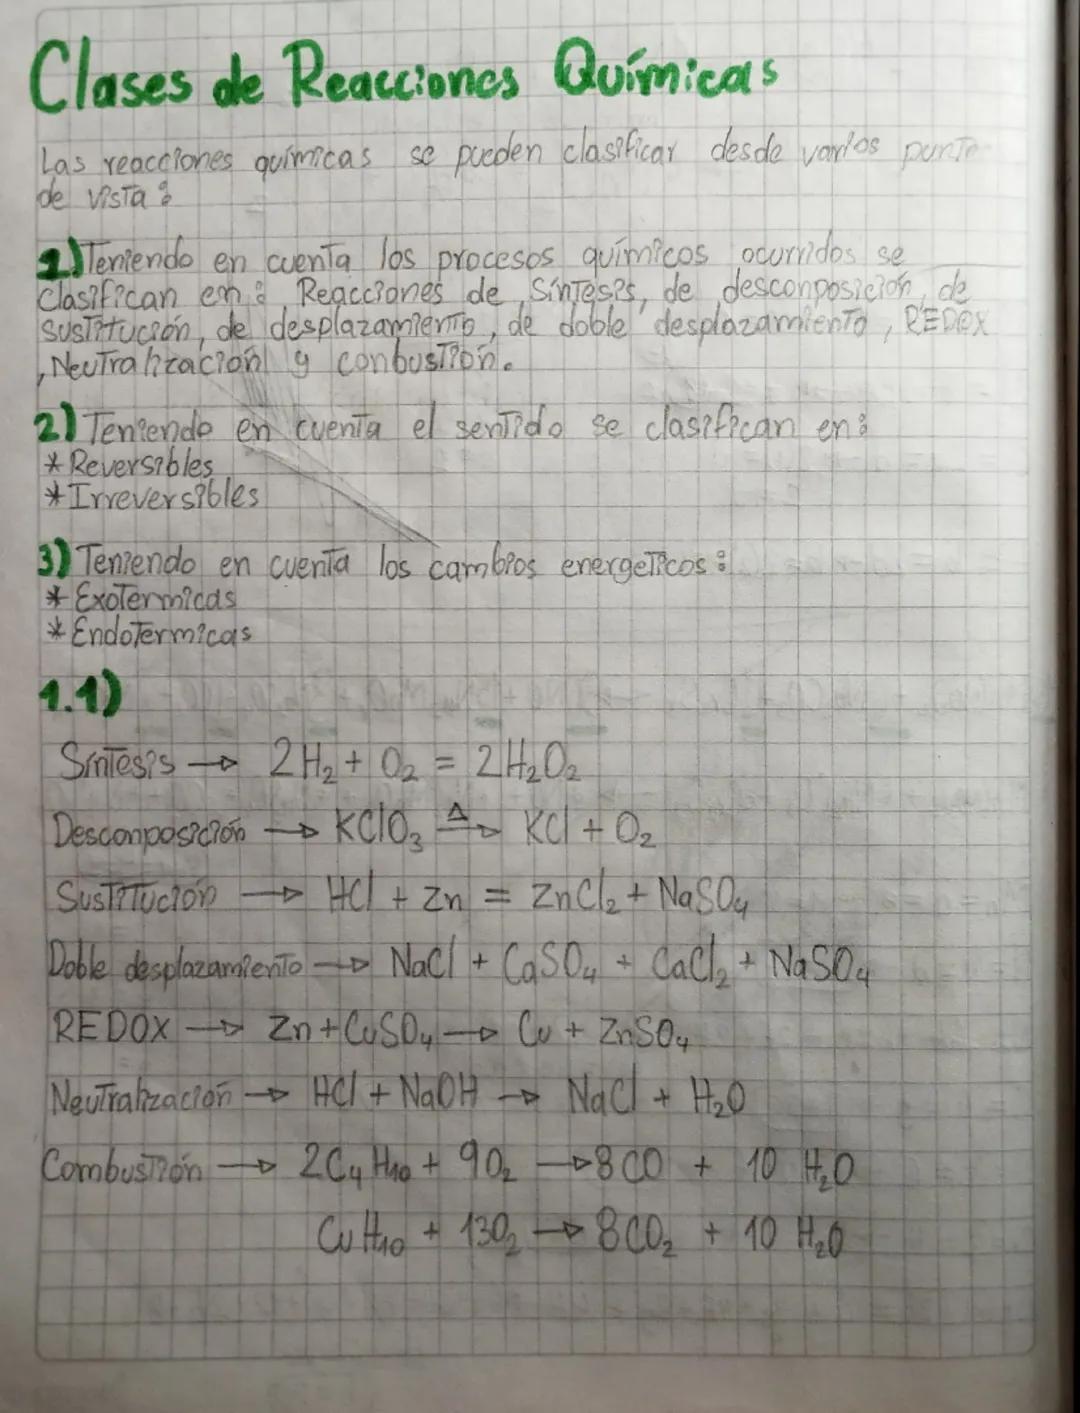 Clases de Reacciones Químicas
Las reacciones químicas se pueden clasificar desde varios punto
de vista:
1) Teniendo en cuenta los procesos químicos ocurridos se
Clasifican en: Reacciones de Síntesis, de desconposición, de
sustitución, de desplazamiento, de doble desplazamiento, REDOX
, Neutralización y conbustión.
2) Teniendo en cuenta el sentido se clasifican en:
* Reversibles
* Irreversibles
3) Teniendo en cuenta los cambios energeticos:
* Exotermicas
* Endotermicas
1.1)
Síntesis → 2H₂ + O₂ = 2H₂O₂
Desconposición → KClO₃ →Δ KCl + O₂
Sustitución → HCl + Zn = ZnCl₂ + NaSO₄
Doble desplazamiento → NaCl + CaSO₄ + CaCl₂ + NaSO₄
REDOX → Zn + CuSO₄ → Cu + ZnSO₄
Neutralización → HCl + NaOH → NaCl + H₂O
Combustión → 2C₄H₁₀ + 9O₂ → 8CO + 10 H₂O
CuH₁₀ + 13O₂ → 8CO₂ + 10 H₂O